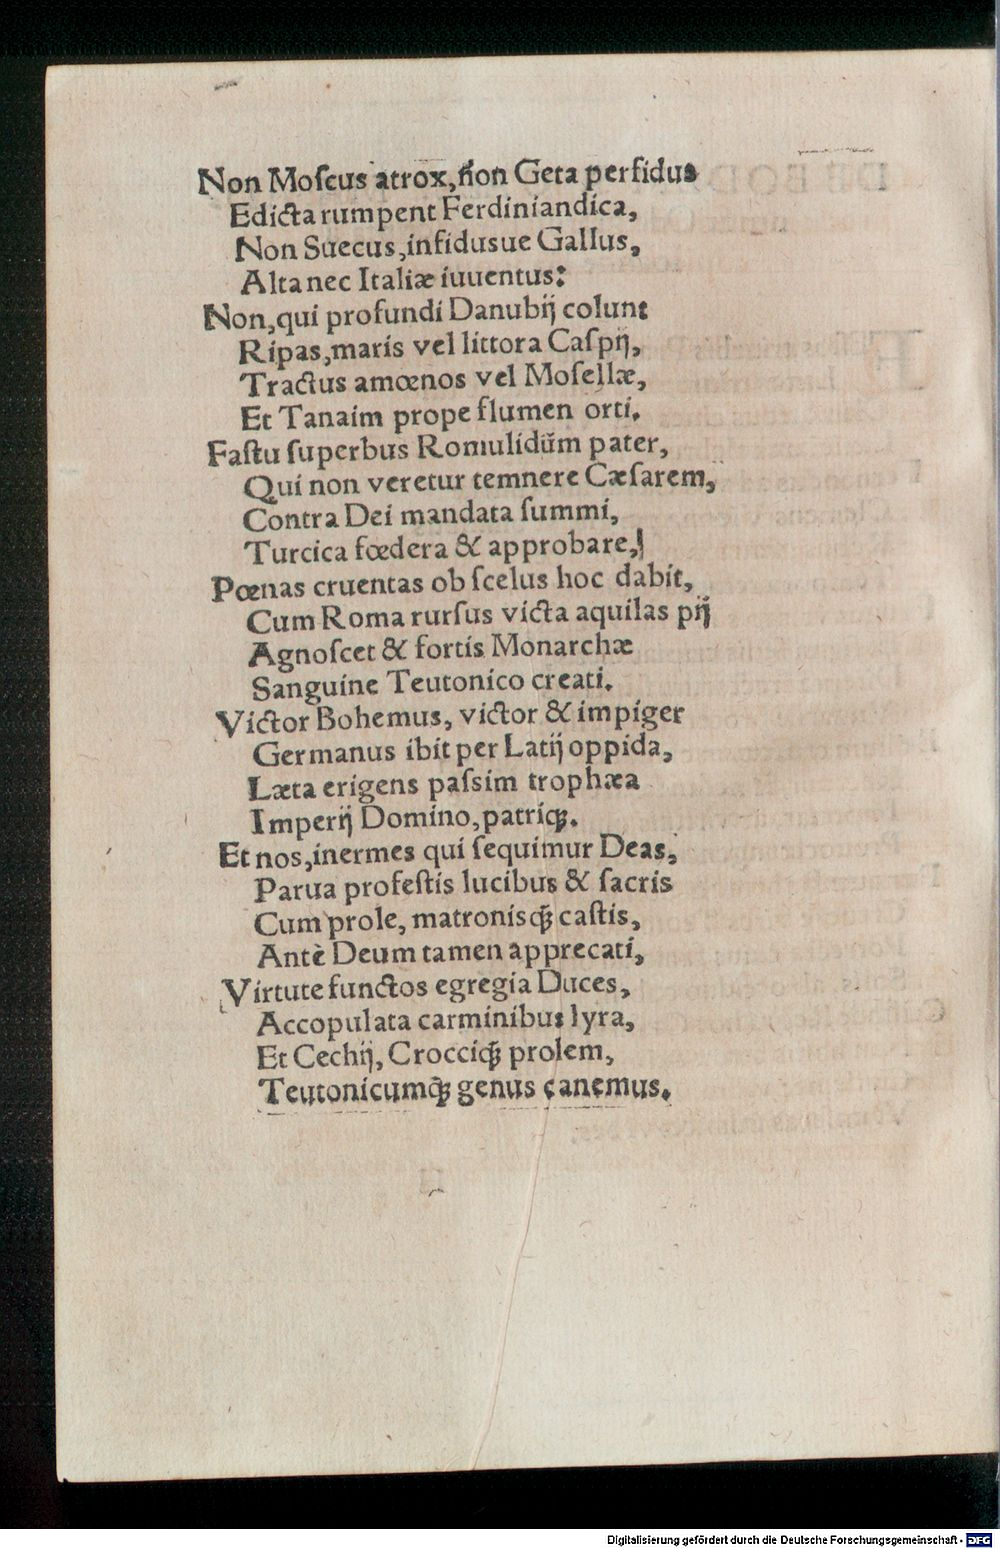 Non Moſcus atrox, non Geta perfidus
Edicta rumpent Ferdiniandica,
Non Suecus, infidusue Gallus,
Alta nec Italiæ iuuentus:
Non, qui profundi Danubij colunt
Ripas, maris vel littora Caſpij,
Tractus amœnos vel Moſellæ,
Et Tanaim prope flumen orti.
Faſtu ſuperbus Romulidûm pater,
Qui non veretur temnere Cæſarem,
Contra Dei mandata ſummi,
Turcica fœdera & approbare,
Pœnas cruentas ob ſcelus hoc dabit,
Cum Roma rurſus victa aquilas pij
Agnoſcet & fortis Monarchæ
Sanguine Teutonico creati.
Victor Bohemus, victor & impiger
Germanus ibit per Latij oppida,
Læta erigens paſsim trophæa
Imperij Domino, patriq́;.
Et nos, inermes qui ſequimur Deas,
Parua profeſtis lucibus & ſacris
Cum prole, matronisq́; caſtis,
Antè Deum tamen apprecati,
Virtute functos egregia Duces,
Accopulata carminibus lyra,
Et Cechij, Crocciq́; prolem,
Teutonicumq́; genus canemus.
Digitalisierung gefördert durch die Deutsche Forschungsgemeinschaft - DFG